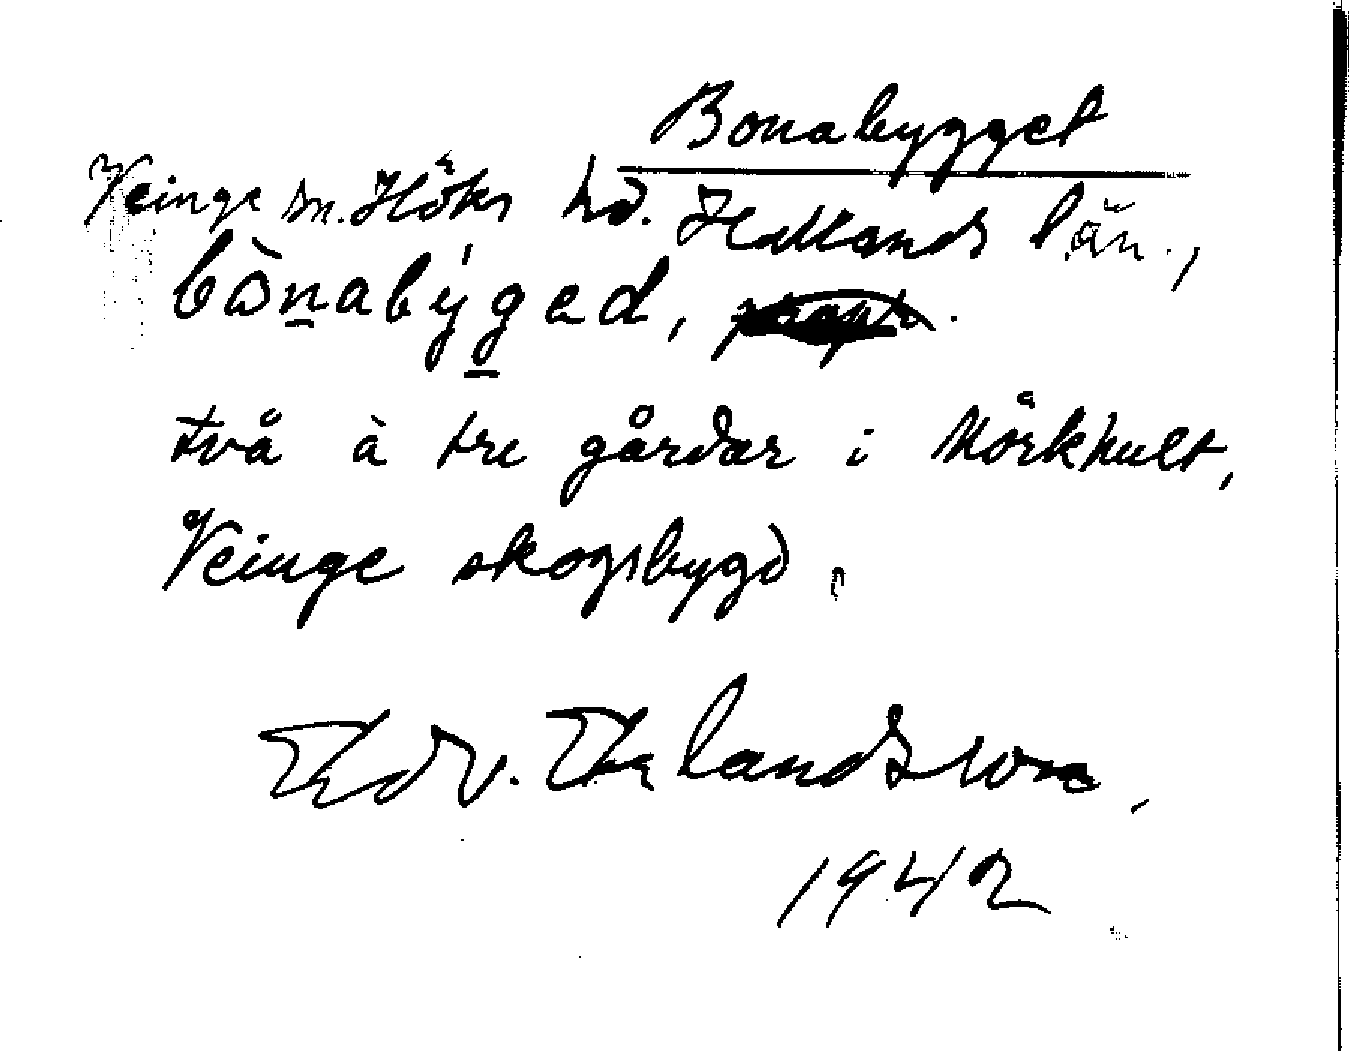 Bonabygget
Veinge sn. Höks hd. Hallands län.,
bònabýged,
två à tre gårdar i Mörkhult,
Veinge skogsbygd.
Edv. Erlandsson.
1942